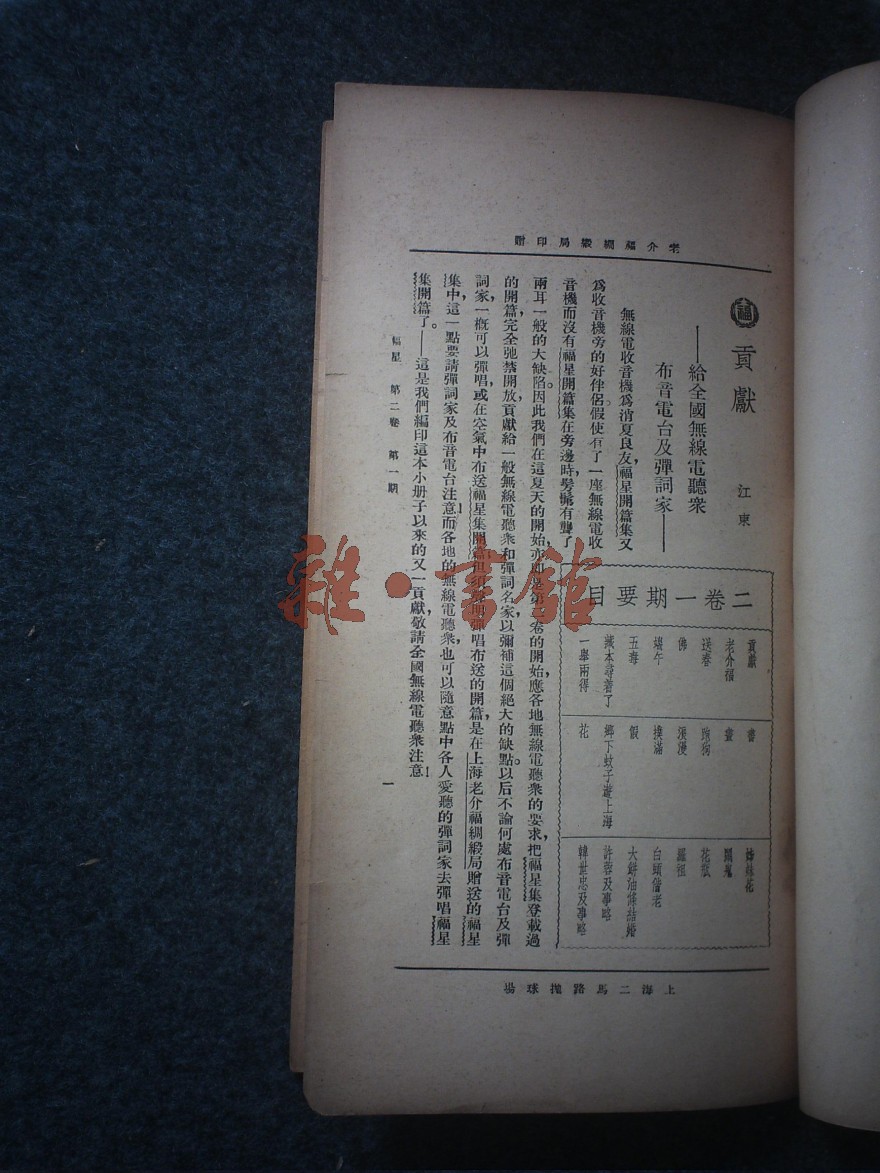 老介福綢緞局印贈
福
貢獻
江東
——給全國無線電聽衆
布音電台及彈詞家——
無線電收音機爲消夏良友,福星開篇集又
爲收音機旁的好伴侶。假使有了一座無線電收
音機而沒有福星開篇集在旁邊時,髣髴有聾了
兩耳一般的大缺陷。因此我們在這夏天的開始,亦即是第二卷的開始,應各地無線電聽衆的要求,把福星集登載過
的開篇,完全弛禁開放,貢獻給一般無線電聽衆和彈詞名家,以彌補這個絕大的缺點。以后不論何處布音電台及彈
詞家,一概可以彈唱,或在空氣中布送福星集開篇,但須聲明彈唱布送的開篇,是在上海老介福綢緞局贈送的福星
集中,這一點要請彈詞家及布音電台注意!而各地的無線電聽衆,也可以隨意點中各人愛聽的彈詞家去彈唱福星
集開篇了。——這是我們編印這本小册子以來的又一貢獻,敬請全國無線電聽衆注意!
二卷一期要目
貢獻
老介福
送春
佛
端午
五毒
藏本尋着了
一舉兩得
書
畫
跑狗
浪漫
撲滿
假
鄉下蚊子遊上海
花
姊妹花
鬧鬼
花瓶
羅祖
白頭偕老
大餅油條結婚
許蓉及事略
韓世忠及事略
福星 第二卷 第一期
一
上海二馬路拋球場
雜·書館